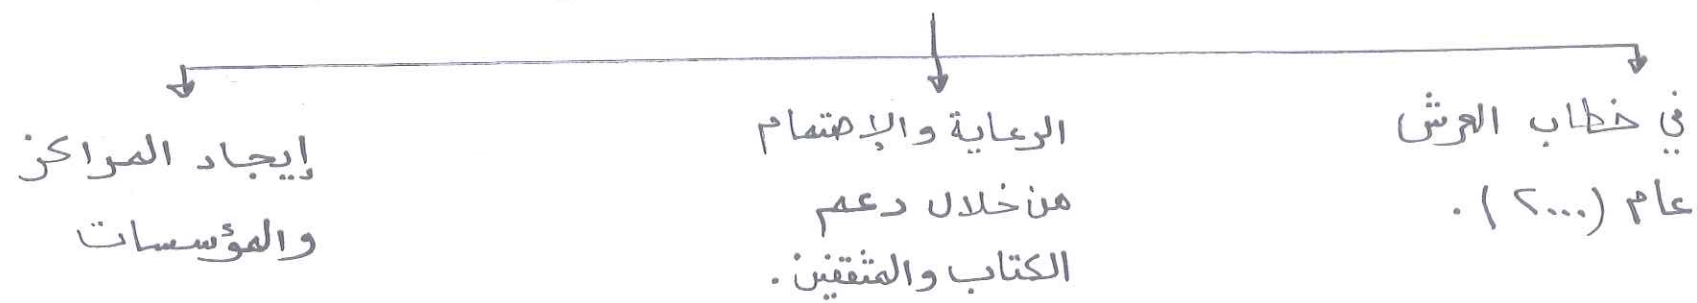 في خطاب العرش
عام (٢٠٠٠).
الرعاية والإهتمام
من خلال دعم
الكتاب والمثقفين.
إيجاد المراكز
والمؤسسات